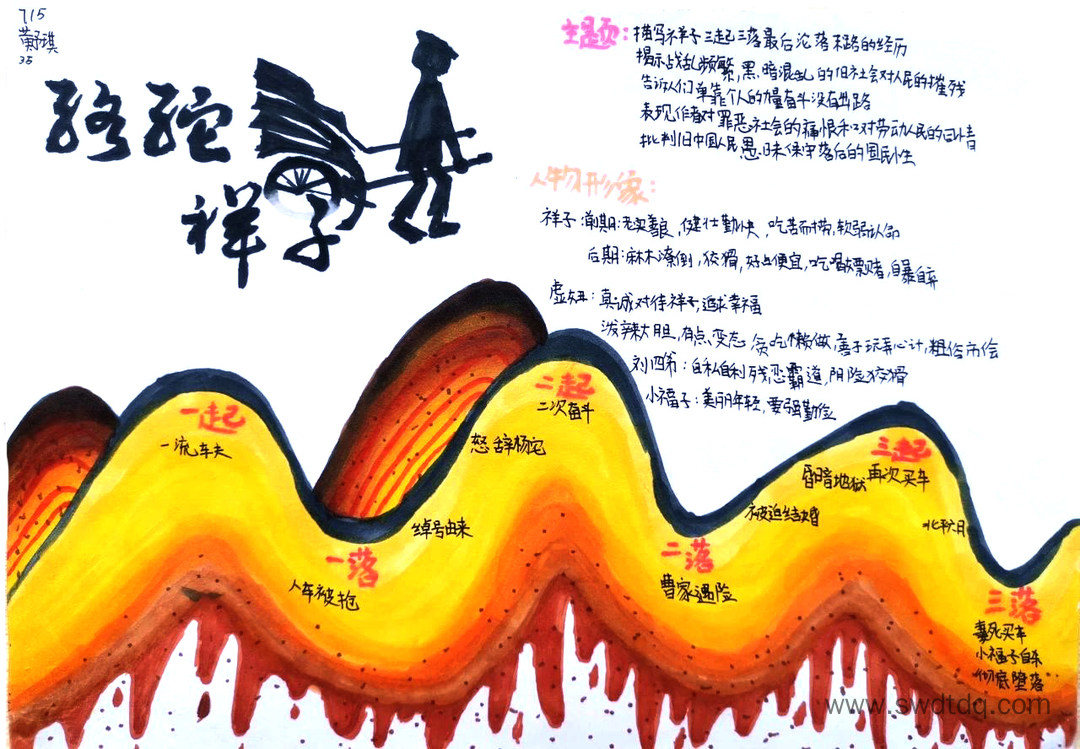 715
35
骆驼
祥子
主题:
描写祥子三起三落最后沦落末路的经历
揭示战乱频繁,黑暗混乱的旧社会对人民的摧残
告诉人们单靠个人的力量奋斗没有出路
表现作者对罪恶社会的痛恨和对劳动人民的同情
批判旧中国人民愚昧保守落后的国民性
人物形象:
祥子:前期:老实善良,健壮勤快,吃苦耐劳,软弱认命
后期:麻木潦倒,狡猾,好占便宜,吃喝嫖赌,自暴自弃
虎妞:真诚对待祥子,追求幸福
泼辣大胆,有点变态 贪吃懒做,善于玩弄心计,粗俗市侩
刘四爷:自私自利 残忍霸道,阴险狡猾
小福子:美丽年轻,要强勤俭
一起
一流车夫
一落
人车被抢
绰号由来
怒辞杨宅
二起
二次奋斗
二落
曹家遇险
被迫结婚
昏暗地狱
三起
再次买车
三落
妻死卖车
小福子自杀
彻底堕落
www.swdtdq.com